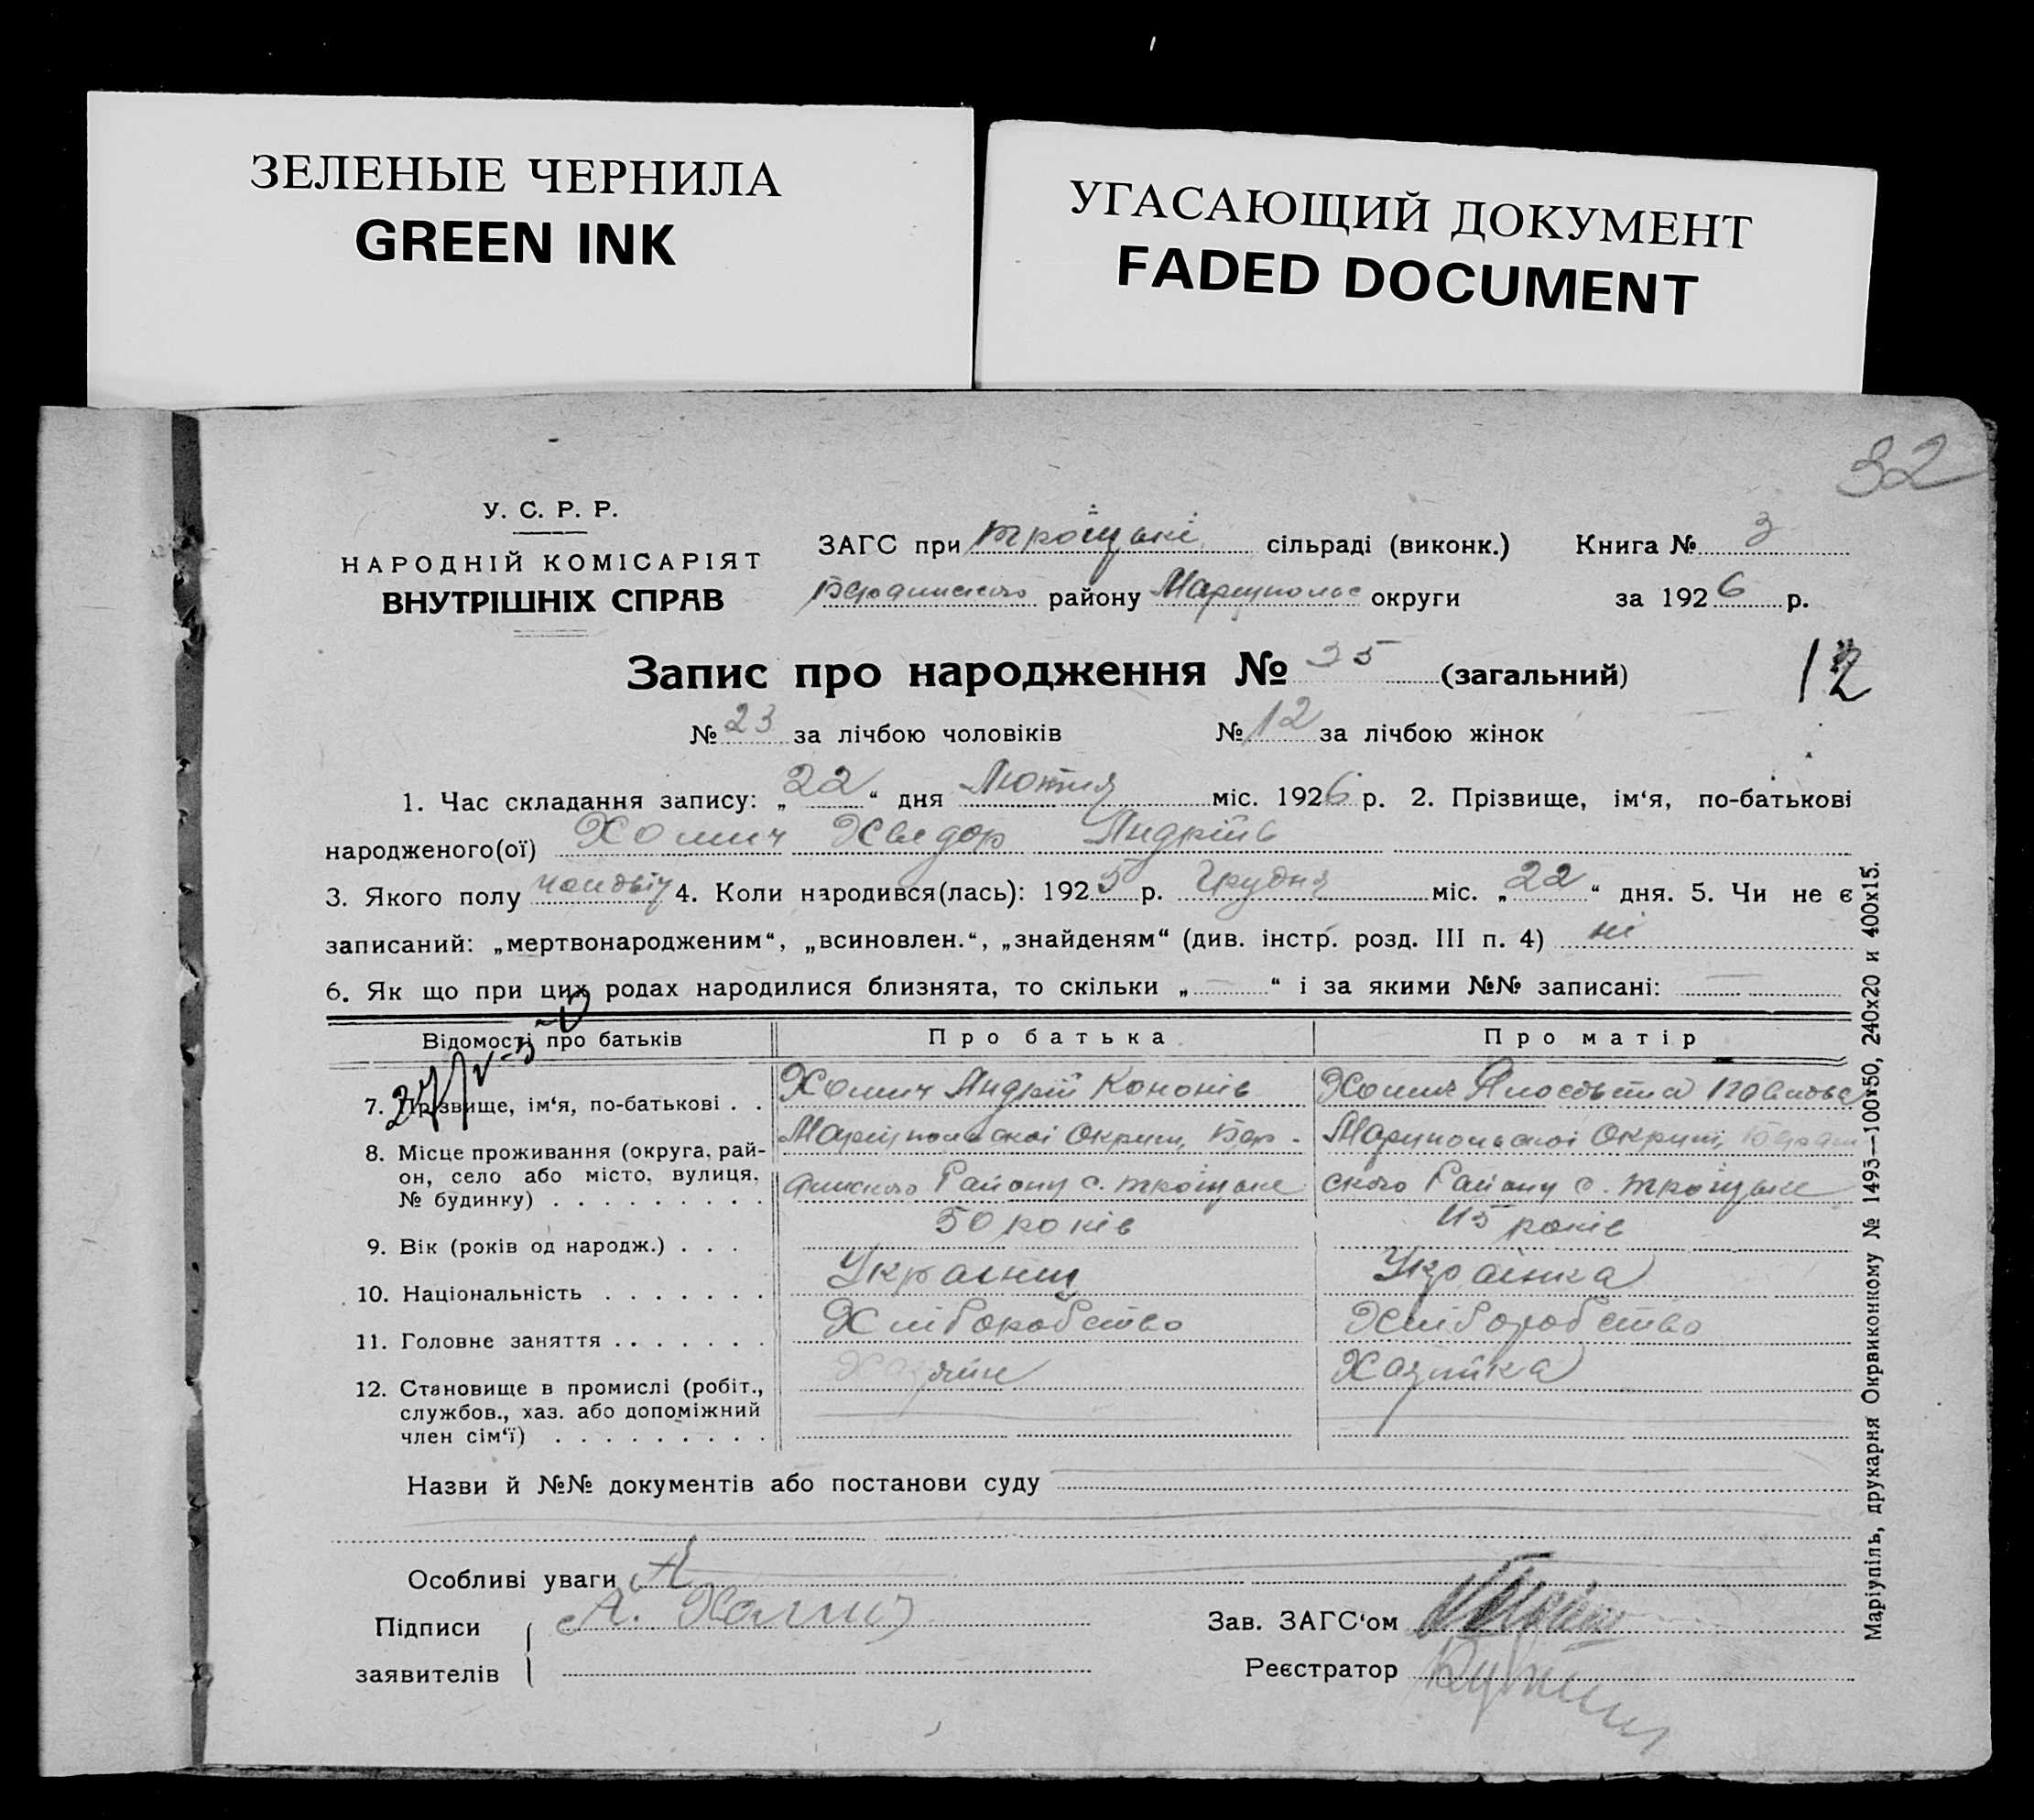 ЗЕЛЕНЫЕ ЧЕРНИЛА
GREEN INK
УГАСАЮЩИЙ ДОКУМЕНТ
FADED DOCUMENT
32
У. С. Р. Р.
НАРОДНІЙ КОМІСАРІЯТ
ВНУТРІШНІХ СПРАВ
ЗАГС при Троіцькі сільраді (виконк.) Книга № 3
району Маріуполь округи за 1926 р.
Запис про народження № 35 (загальний)
12
№ 23 за лічбою чоловіків № 12 за лічбою жінок
1. Час складання запису: „22“ дня Лютня міс. 1926 р. 2. Прізвище, ім‘я, по-батькові
народженого(ої) Хомич Хведор Андріів
3. Якого полу чоловіч 4. Коли народився(лась): 1925 р. Грудня міс. „22“ дня. 5. Чи не є
записаний: „мертвонародженим“, „всиновлен.“, „знайденям“ (див. інстр. розд. III п. 4) ні
6. Як що при цих родах народилися близнята, то скільки „—“ і за якими №№ записані: —
Відомості про батьків Про батька Про матір
7. Прізвище, ім‘я, по-батькові . . Хомич Андрій Кононів Хомич Павлова
8. Місце проживання (округа, рай- Маріупольскоі Округи, Бер- Маріупольскоі Округи,
он, село або місто, вулиця, Району с. Троіцьке ского Району с. Троіцьке
№ будинку) . . . . . . . . .
9. Вік (років од народж.) . . . 50 років 45 років
10. Національність . . . . . . . Украінец Украінка
11. Головне заняття . . . . . . . Хліборобство Хліборобство
12. Становище в промислі (робіт., Хазяїн Хазяйка
службов., хаз. або допоміжний
член сім‘ї) . . . . . . . . .
Назви й №№ документів або постанови суду
Особливі уваги
Підписи А. Хомич Зав. ЗАГС‘ом
заявителів Реєстратор
Маріупіль, друкарня Окрвиконкому № 1493—100x50, 240x20 и 400x15.